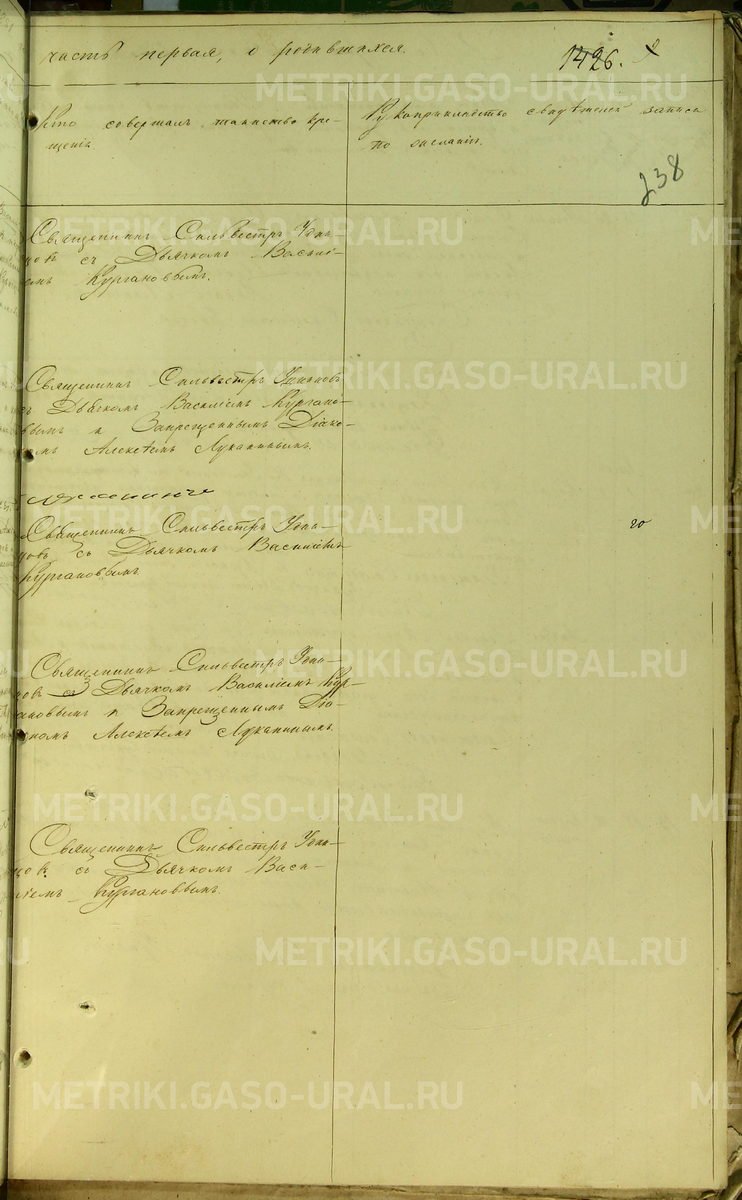 часть первая, о родившихся.
1426.
Кто совершалъ таинство кре-
щенія
Рукоприкладство свидѣтелей записи
по желанію.
238
Священникъ Сильвестръ Удин-
цовъ съ Дьячкомъ Василі-
емъ Кургановымъ.
Священникъ Сильвестръ Удинцовъ
съ Дьячкомъ Василіемъ Кургано-
вымъ и Запрещеннымъ Діако-
номъ Алексѣемъ Луканинымъ.
Священникъ Сильвестръ Удин-
цовъ съ Дьячкомъ Василіемъ
Кургановымъ
го
Священникъ Сильвестръ Удин-
цовъ съ Дьячкомъ Василіемъ Кур-
гановымъ и Запрещеннымъ Діа-
кономъ Алексѣемъ Луканинымъ.
Священникъ Сильвестръ Удин-
цовъ съ Дьячкомъ Васи-
ліемъ Кургановымъ.
METRIKI.GASO-URAL.RU